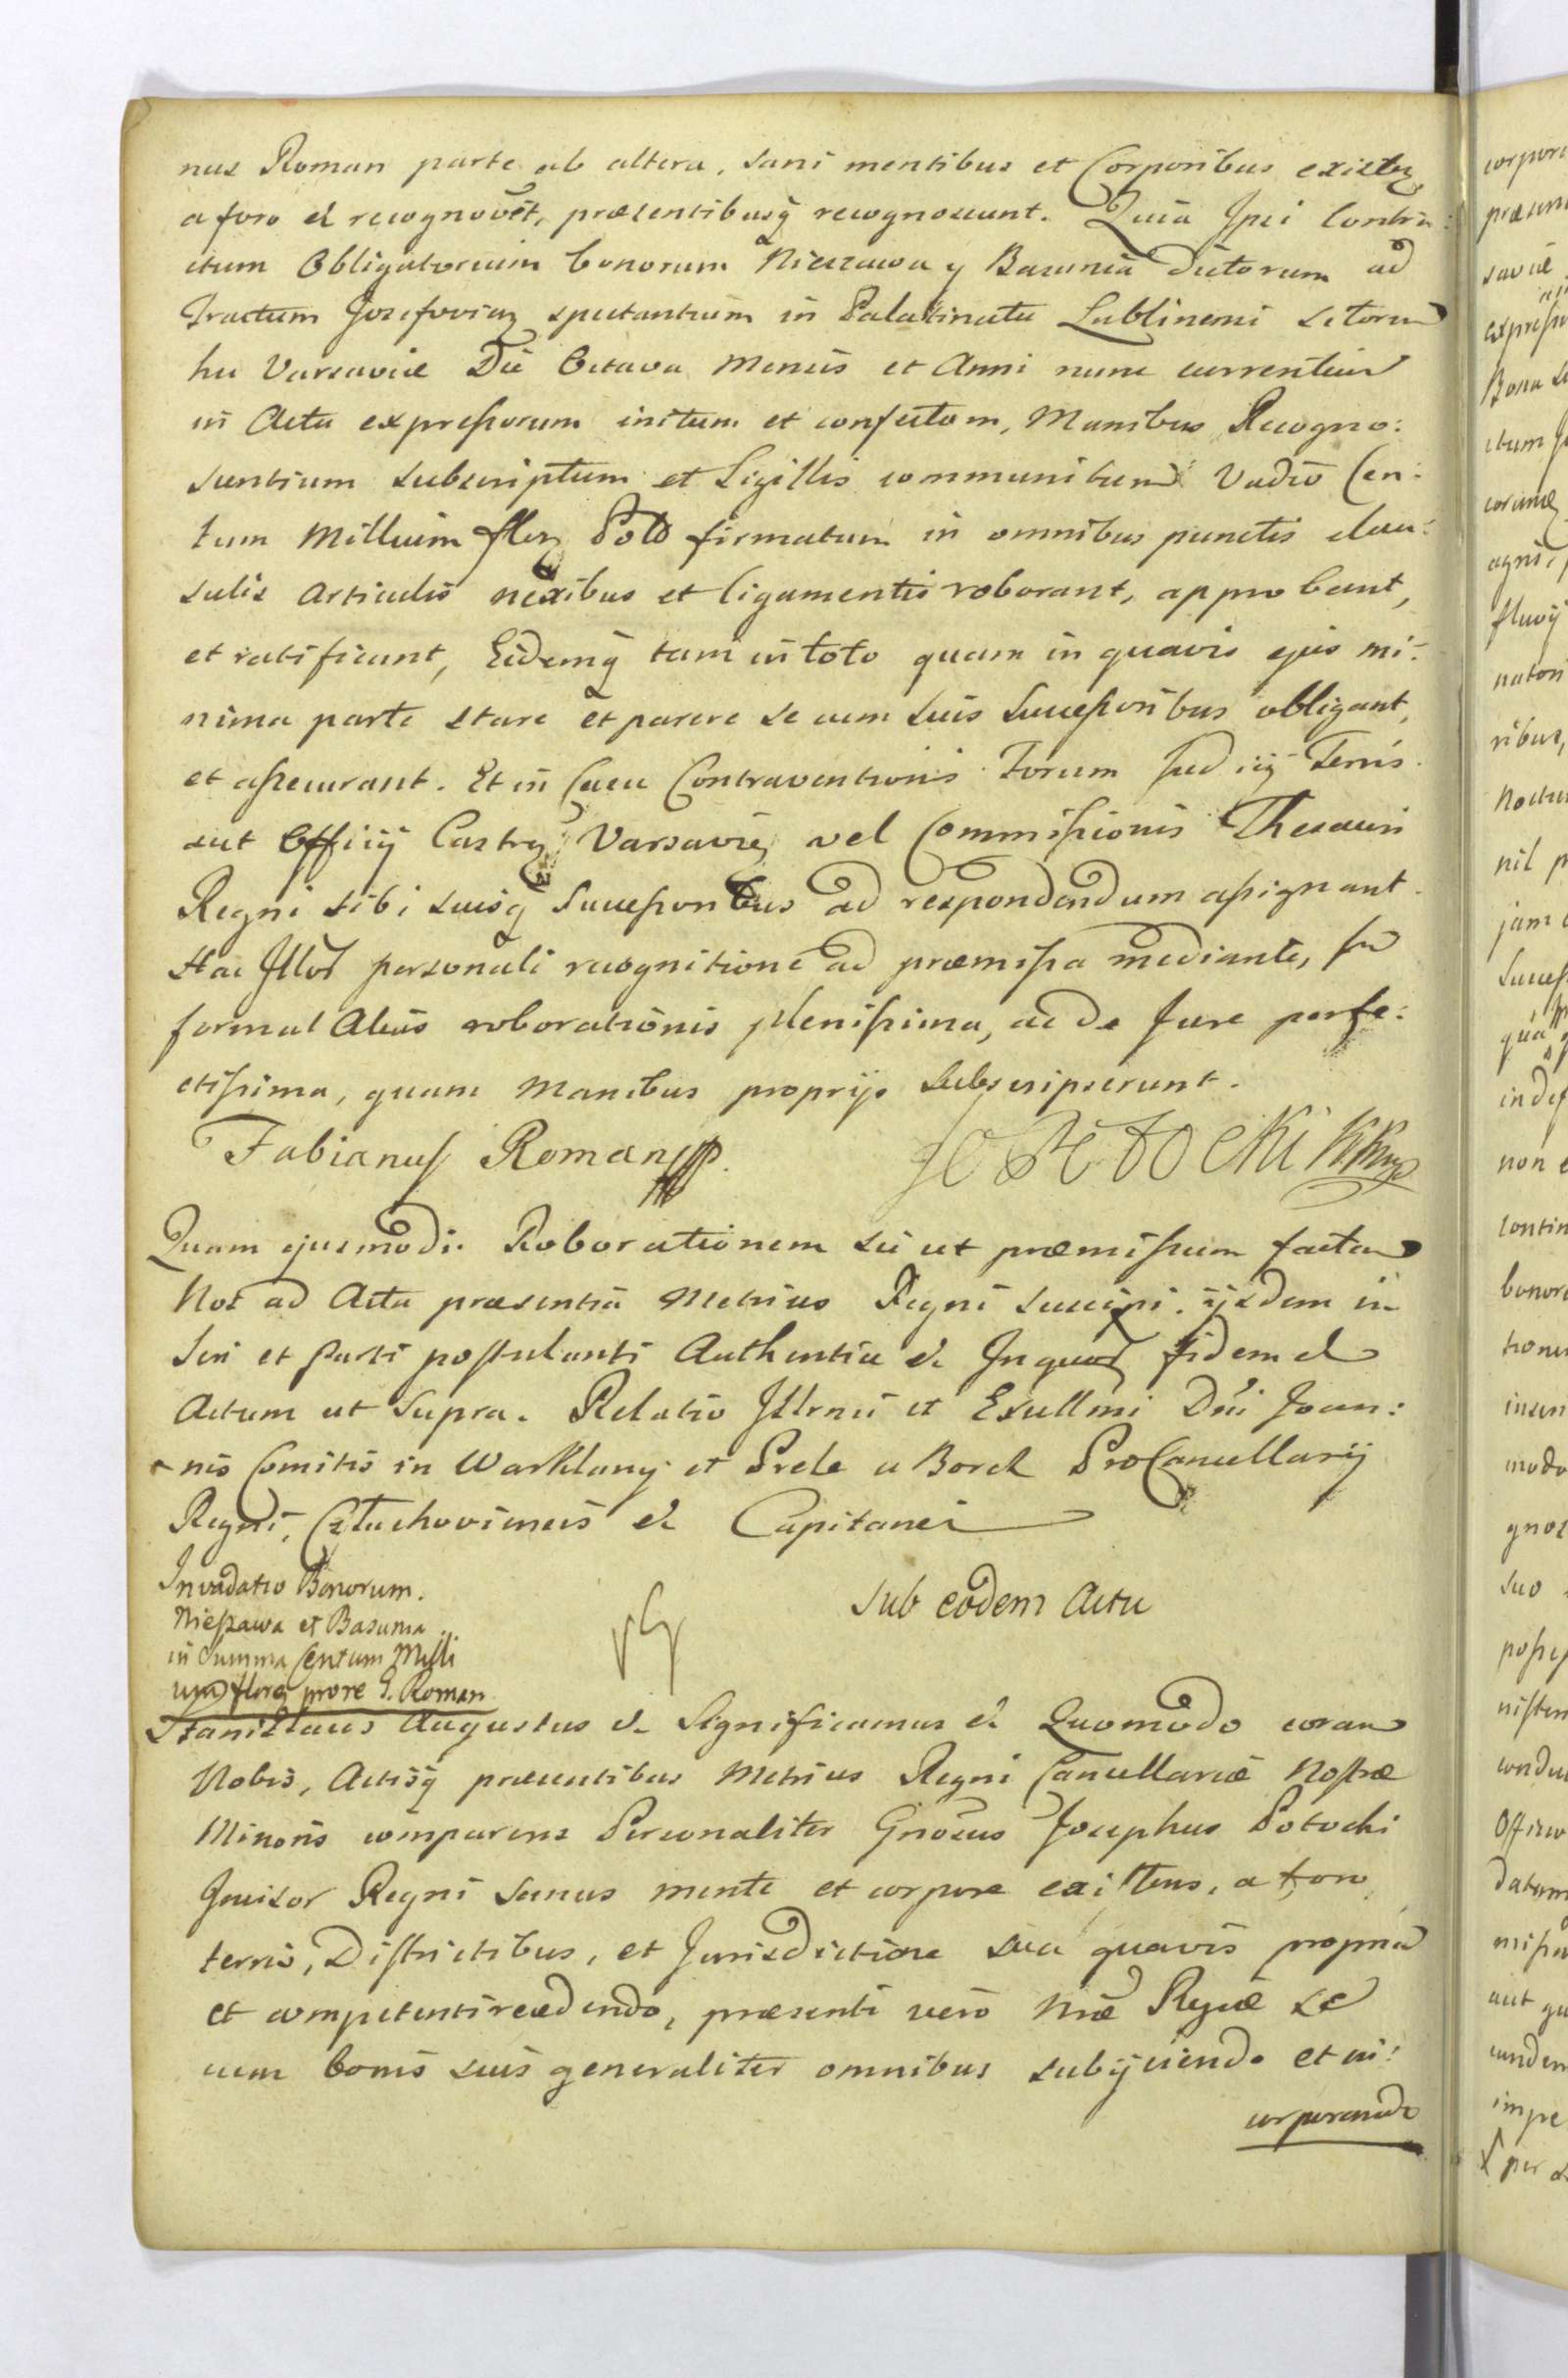 nus Roman parte ab altera, sani mentibus et Corporibus existen
a foro et recognovēt, præsentibusq̃ recognoscunt. Quia Ipsi Contra:
ctum Obligatorium bonorum Nieszawa y Basunia dictorum ad
Tractum Jozefovien spectantium in Palatinatu Lublinensi sitorum
hic Varsaviæ Die Octava Mensis et Anni nunc currentium
in Actu expressorum initum et confectum, Manibus Recogno:
scentium subscriptum et Sigillis communitum Vadio Cen:
tum Millium flor Pold firmatum in omnibus punctis clau:
sulis Articulis nexibus et ligamentis roborant, approbant,
et ratificant, Eidemq̃ tam in toto quam in quavis ejus mi:
nima parte stare et parere se cum suis Successoribus obligant,
et assecurant. Et in Casu Contraventionis Forum Terris
aut Officij Castren Varsavien vel Commissionis Thesauri
Regni sibi suisq̃ Successoribus ad respondendum assignant.
Hac personali recognitione ad præmissa mediante,
formal Alias roborationis plenissima, ac de Jure perfe:
ctissima, quam Manibus proprijs subscripserunt.
Fabianus Roman mpp.
Jo Potocki KK mp
Quam ejusmodi Roborationem sic ut præmissum factam
Nos ad Acta præsentia Metrices Regni suscipi. ijsdem in
seri et Parti postulanti Authentice & In quod fidem &
Actum ut Supra. Relatio Illrmi et Exellmi Dni Joan:
nis Comitis in Warklany et Prele a Borch ProCancellarij
Regni, Człuchoviensis & Capitanei
Invadatio Bonorum.
Nieszawa et Basunia
in Summa Centum Milli
um flore prore G. Roman
Sub eodem Actu
Stanislaus Augustus & Significamus & Quomodo coram
Nobis, Actisq̃ præsentibus Metrices Regni Cancellariæ Nostræ
Minoris comparens Personaliter Gnosus Josephus Potocki
Incisor Regni Sanus mente et corpore existens, a foro,
terris, Districtibus, et Jurisdictione sua quavis propria
et competenti recedendo, præsenti vero Nræ Regiæ se
cum bonis suis generaliter omnibus subijciendo et in:
corporando